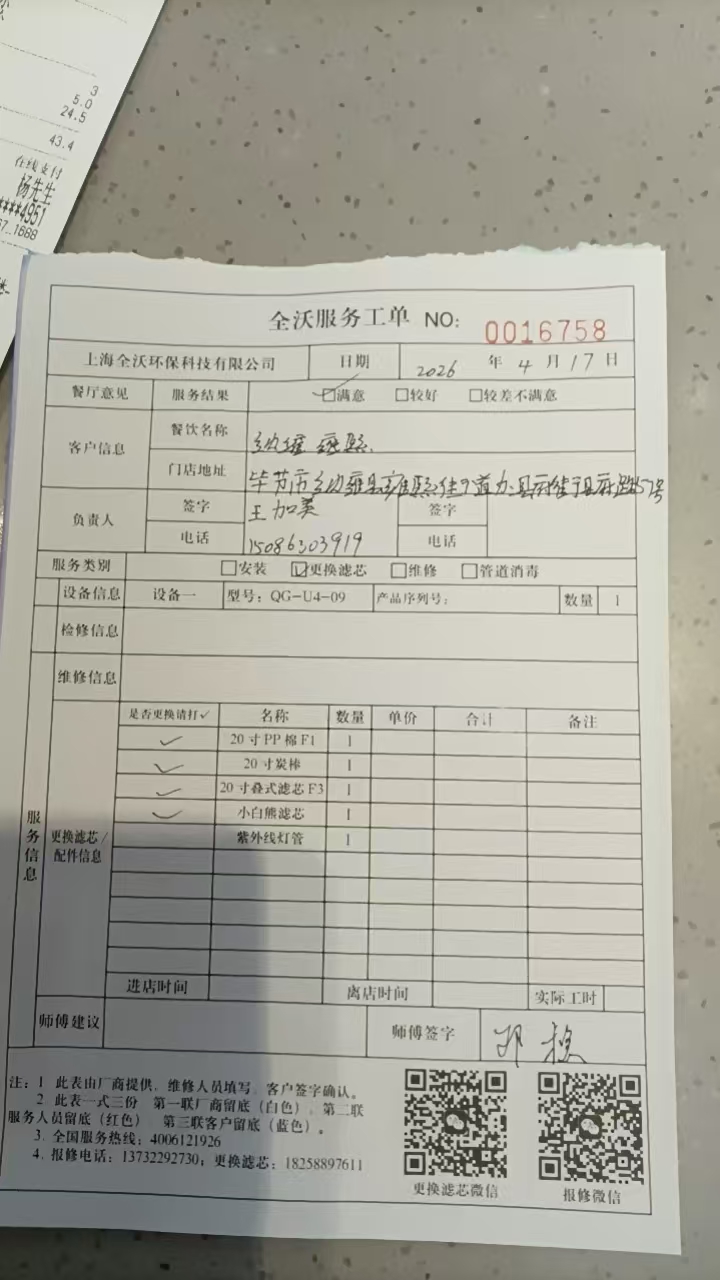 3
5.0
24.5
43.4
在线支付
杨先生
****4951
7..1688
全沃服务工单 NO: 0016758
上海全沃环保科技有限公司 日期 2026 年 4 月 17 日
餐厅意见 服务结果 ☑满意 □较好 □较差不满意
客户信息 餐饮名称
门店地址 毕节市
负责人 签字 王加美 签字
电话 15086303919 电话
服务类别 □安装 ☑更换滤芯 □维修 □管道消毒
设备信息 设备一 型号: QG-U4-09 产品序列号: 数量 1
检修信息
维修信息
服务信息
更换滤芯/配件信息
是否更换请打✓ 名称 数量 单价 合计 备注
✓ 20寸PP棉F1 1
✓ 20寸炭棒 1
✓ 20寸叠式滤芯F3 1
✓ 小白熊滤芯 1
紫外线灯管 1
进店时间 离店时间 实际工时
师傅建议 师傅签字
注: 1 此表由厂商提供, 维修人员填写, 客户签字确认。
2 此表一式三份 第一联厂商留底(白色), 第二联
服务人员留底(红色) 第三联客户留底(蓝色)。
3. 全国服务热线: 4006121926
4. 报修电话: 13732292730; 更换滤芯: 18258897611
更换滤芯微信 报修微信